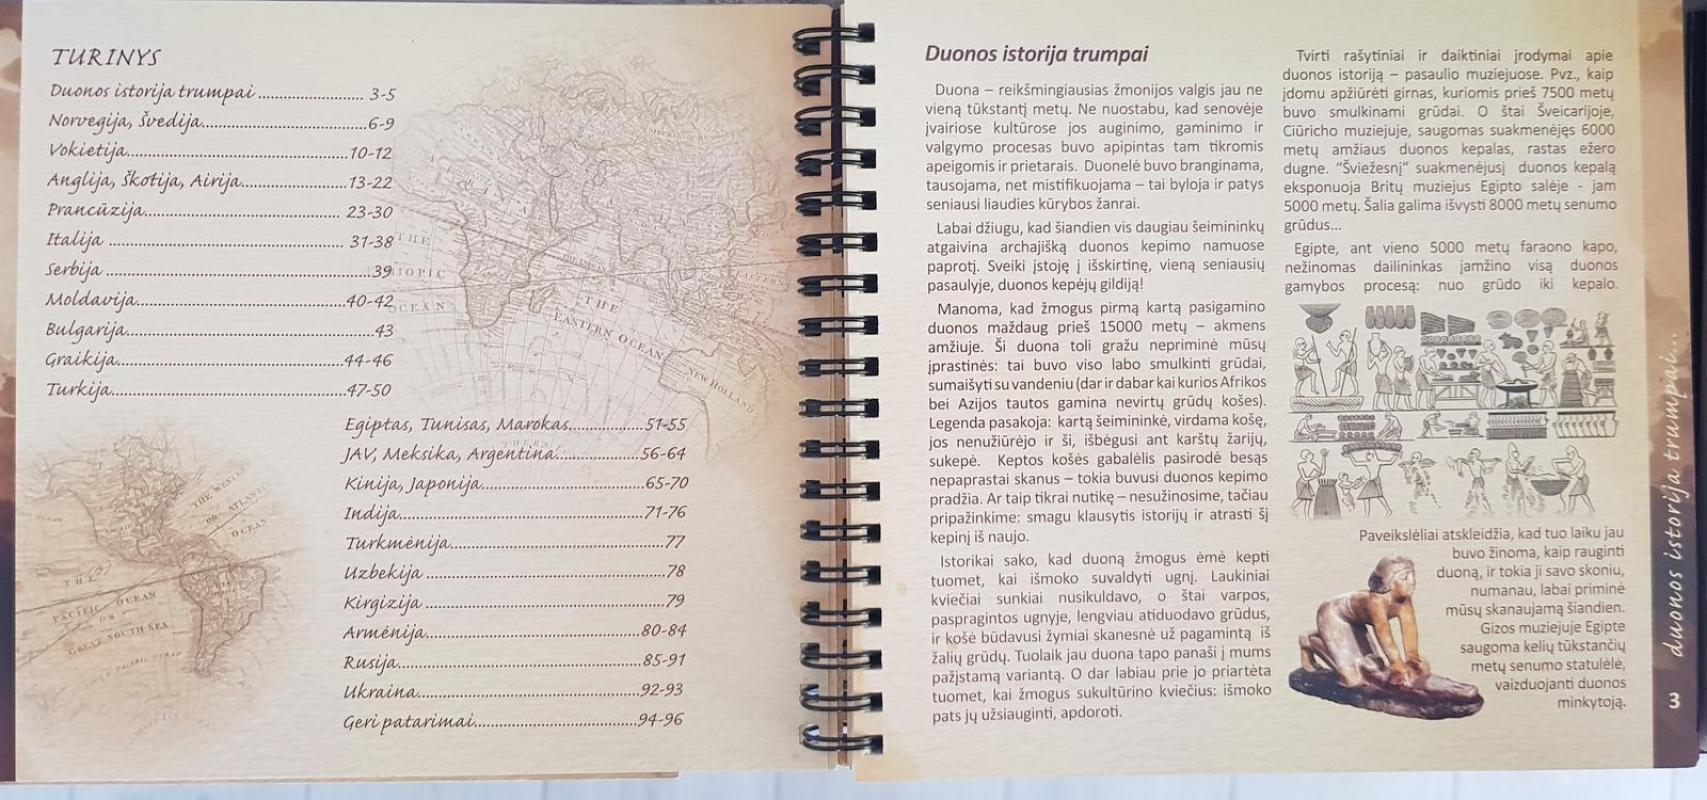 TURINYS
Duonos istorija trumpai ........................ 3-5
Norvegija, Švedija......................................6-9
Vokietija....................................................10-12
Anglija, Škotija, Airija.........................13-22
Prancūzija.............................................. 23-30
Italija ...................................................... 31-38
Serbija ..........................................................39
Moldavija.................................................40-42
Bulgarija........................................................43
Graikija....................................................44-46
Turkija......................................................47-50
Egiptas, Tunisas, Marokas.................51-55
JAV, Meksika, Argentina....................56-64
Kinija, Japonija......................................65-70
Indija........................................................71-76
Turkmėnija....................................................77
Uzbekija ........................................................78
Kirgizija ........................................................79
Armėnija..................................................80-84
Rusija........................................................85-91
Ukraina.....................................................92-93
Geri patarimai.......................................94-96
THE
OCEAN
THE
EASTERN OCEAN
NEW HOLLAND
THE WESTERN
OR ATLANTIC
OCEAN
THE
PACIFIC OCEAN
OR
GREAT SOUTH SEA
Duonos istorija trumpai
Duona – reikšmingiausias žmonijos valgis jau ne
vieną tūkstantį metų. Ne nuostabu, kad senovėje
įvairiose kultūrose jos auginimo, gaminimo ir
valgymo procesas buvo apipintas tam tikromis
apeigomis ir prietarais. Duonelė buvo branginama,
tausojama, net mistifikuojama – tai byloja ir patys
seniausi liaudies kūrybos žanrai.
Labai džiugu, kad šiandien vis daugiau šeimininkų
atgaivina archajišką duonos kepimo namuose
paprotį. Sveiki įstoję į išskirtinę, vieną seniausių
pasaulyje, duonos kepėjų gildiją!
Manoma, kad žmogus pirmą kartą pasigamino
duonos maždaug prieš 15000 metų – akmens
amžiuje. Ši duona toli gražu nepriminė mūsų
įprastinės: tai buvo viso labo smulkinti grūdai,
sumaišyti su vandeniu (dar ir dabar kai kurios Afrikos
bei Azijos tautos gamina nevirtų grūdų košes).
Legenda pasakoja: kartą šeimininkė, virdama košę,
jos nenužiūrėjo ir ši, išbėgusi ant karštų žarijų,
sukepė. Keptos košės gabalėlis pasirodė besąs
nepaprastai skanus – tokia buvusi duonos kepimo
pradžia. Ar taip tikrai nutikę – nesužinosime, tačiau
pripažinkime: smagu klausytis istorijų ir atrasti šį
kepinį iš naujo.
Istorikai sako, kad duoną žmogus ėmė kepti
tuomet, kai išmoko suvaldyti ugnį. Laukiniai
kviečiai sunkiai nusikuldavo, o štai varpos,
paspragintos ugnyje, lengviau atiduodavo grūdus,
ir košė būdavusi žymiai skanesnė už pagamintą iš
žalių grūdų. Tuolaik jau duona tapo panaši į mums
pažįstamą variantą. O dar labiau prie jo priartėta
tuomet, kai žmogus sukultūrino kviečius: išmoko
pats jų užsiauginti, apdoroti.
Tvirti rašytiniai ir daiktiniai įrodymai apie
duonos istoriją – pasaulio muziejuose. Pvz., kaip
įdomu apžiūrėti girnas, kuriomis prieš 7500 metų
buvo smulkinami grūdai. O štai Šveicarijoje,
Ciūricho muziejuje, saugomas suakmenėjęs 6000
metų amžiaus duonos kepalas, rastas ežero
dugne. "Šviežesnį" suakmenėjusį duonos kepalą
eksponuoja Britų muziejus Egipto salėje - jam
5000 metų. Šalia galima išvysti 8000 metų senumo
grūdus...
Egipte, ant vieno 5000 metų faraono kapo,
nežinomas dailininkas įamžino visą duonos
gamybos procesą: nuo grūdo iki kepalo.
Paveikslėliai atskleidžia, kad tuo laiku jau
buvo žinoma, kaip rauginti
duoną, ir tokia ji savo skoniu,
numanau, labai priminė
mūsų skanaujamą šiandien.
Gizos muziejuje Egipte
saugoma kelių tūkstančių
metų senumo statulėlė,
vaizduojanti duonos
minkytoją.
duonos istorija trumpai...
3